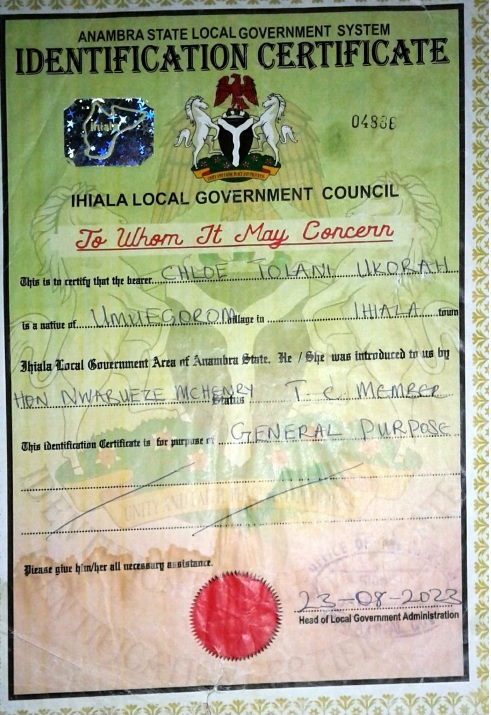 ANAMBRA STATE LOCAL GOVERNMENT SYSTEM
IDENTIFICATION CERTIFICATE
Ihiala
IHIALA LOCAL GOVERNMENT COUNCIL
To Whom It May Concern
This is to certify that the bearer CHLOE TOLANI UKORAH
is a native of UMUEGOROM village in IHIALA town
Ihiala Local Government Area of Anambra State, He / She was introduced to us by
HON NWABUEZE MCHENRY Status T. C MEMBER
This identification Certificate is for purpose of GENERAL PURPOSE
Please give him/her all necessary assistance.
23-08-2023
Head of Local Government Administration